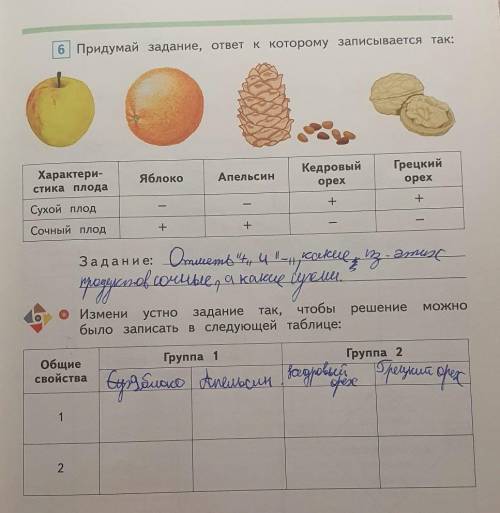 6 Придумай задание, ответ к которому записывается так:
Характери-
стика плода
Яблоко
Апельсин
Кедровый
орех
Грецкий
орех
Сухой плод
– – + +
Сочный плод
+ + – –
Задание: Отметь "+" и "–", какие из этих
продуктов сочные, а какие сухие.
Измени устно задание так, чтобы решение можно
было записать в следующей таблице:
Общие
свойства
Группа 1
Группа 2
Яблоко
Апельсин
Кедровый
орех
Грецкий орех
1
2